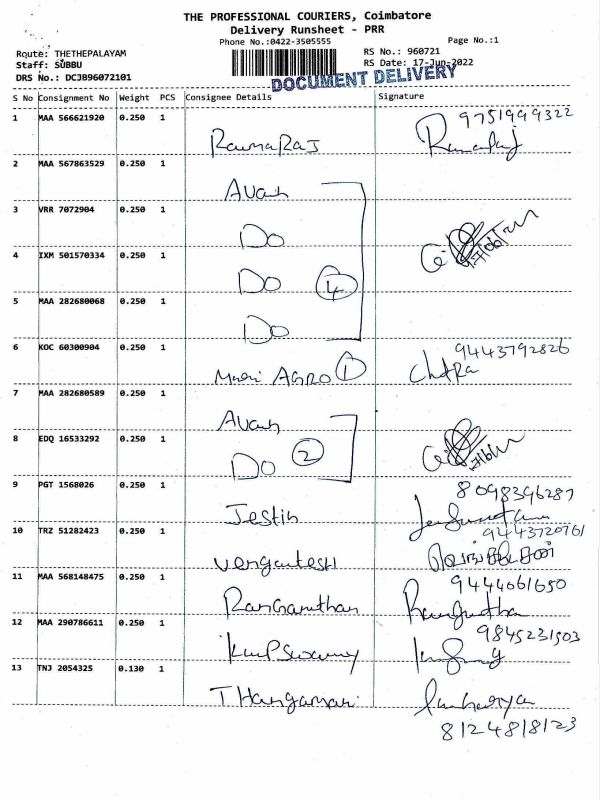 THE PROFESSIONAL COURIERS, Coimbatore
Delivery Runsheet - PRR
Phone No.:0422-3505555
Page No.:1
Route: THETHEPALAYAM
RS No.: 960721
Staff: SUBBU
RS Date: 17-Jun-2022
DRS No.: DCJB96072101
DOCUMENT DELIVERY
S No Consignment No Weight PCS Consignee Details Signature
1 MAA 566621920 0.250 1
9751999322
RamaRaj
2 MAA 567863529 0.250 1
3 VRR 7072904 0.250 1
Do
4 IXM 501570334 0.250 1
Do 4
5 MAA 282680068 0.250 1
Do
6 KOC 60300904 0.250 1
9443792826
AGRO 1 Chitra
7 MAA 282680589 0.250 1
8 EDQ 16533292 0.250 1
Do 2
9 PGT 1568026 0.250 1
8098396287
Jestin
10 TRZ 51282423 0.250 1
9443720761
Vengantesh
11 MAA 568148475 0.250 1
9444061650
Ranganathan
12 MAA 290786611 0.250 1
9845231503
13 TNJ 2054325 0.130 1
Thangamari
8124818123